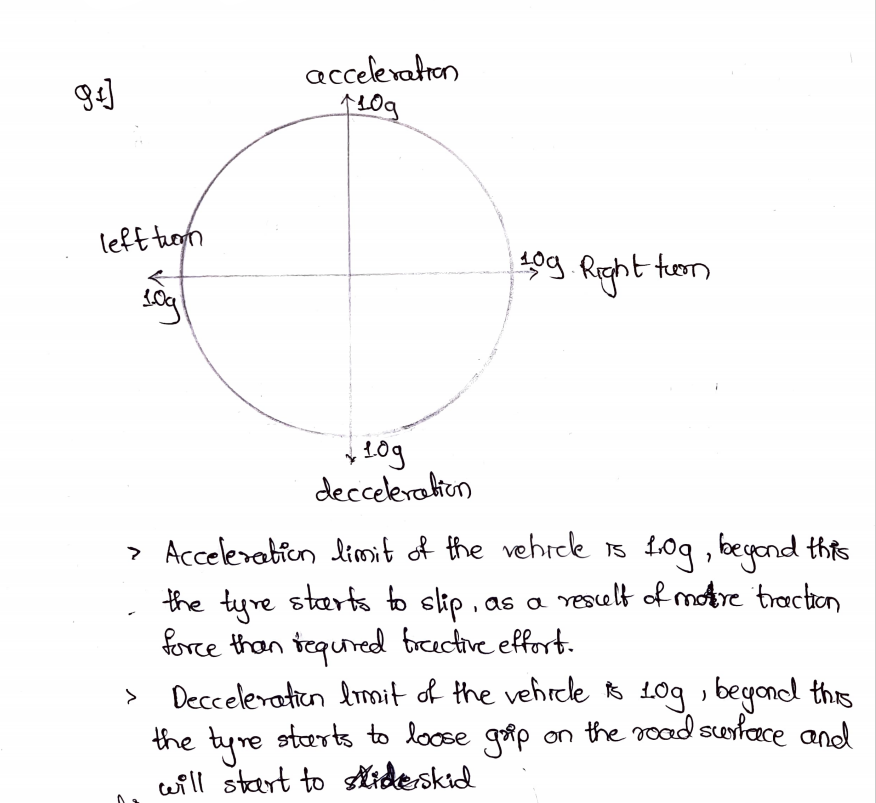 Q1]
acceleration
1.0g
left turn
1.0g
1.0g Right turn
1.0g
decceleration
> Acceleration limit of the vehicle is 1.0g, beyond this
the tyre starts to slip, as a result of more traction
force than required tractive effort.
> Decceleration limit of the vehicle is 1.0g, beyond this
the tyre starts to loose grip on the road surface and
will start to skid